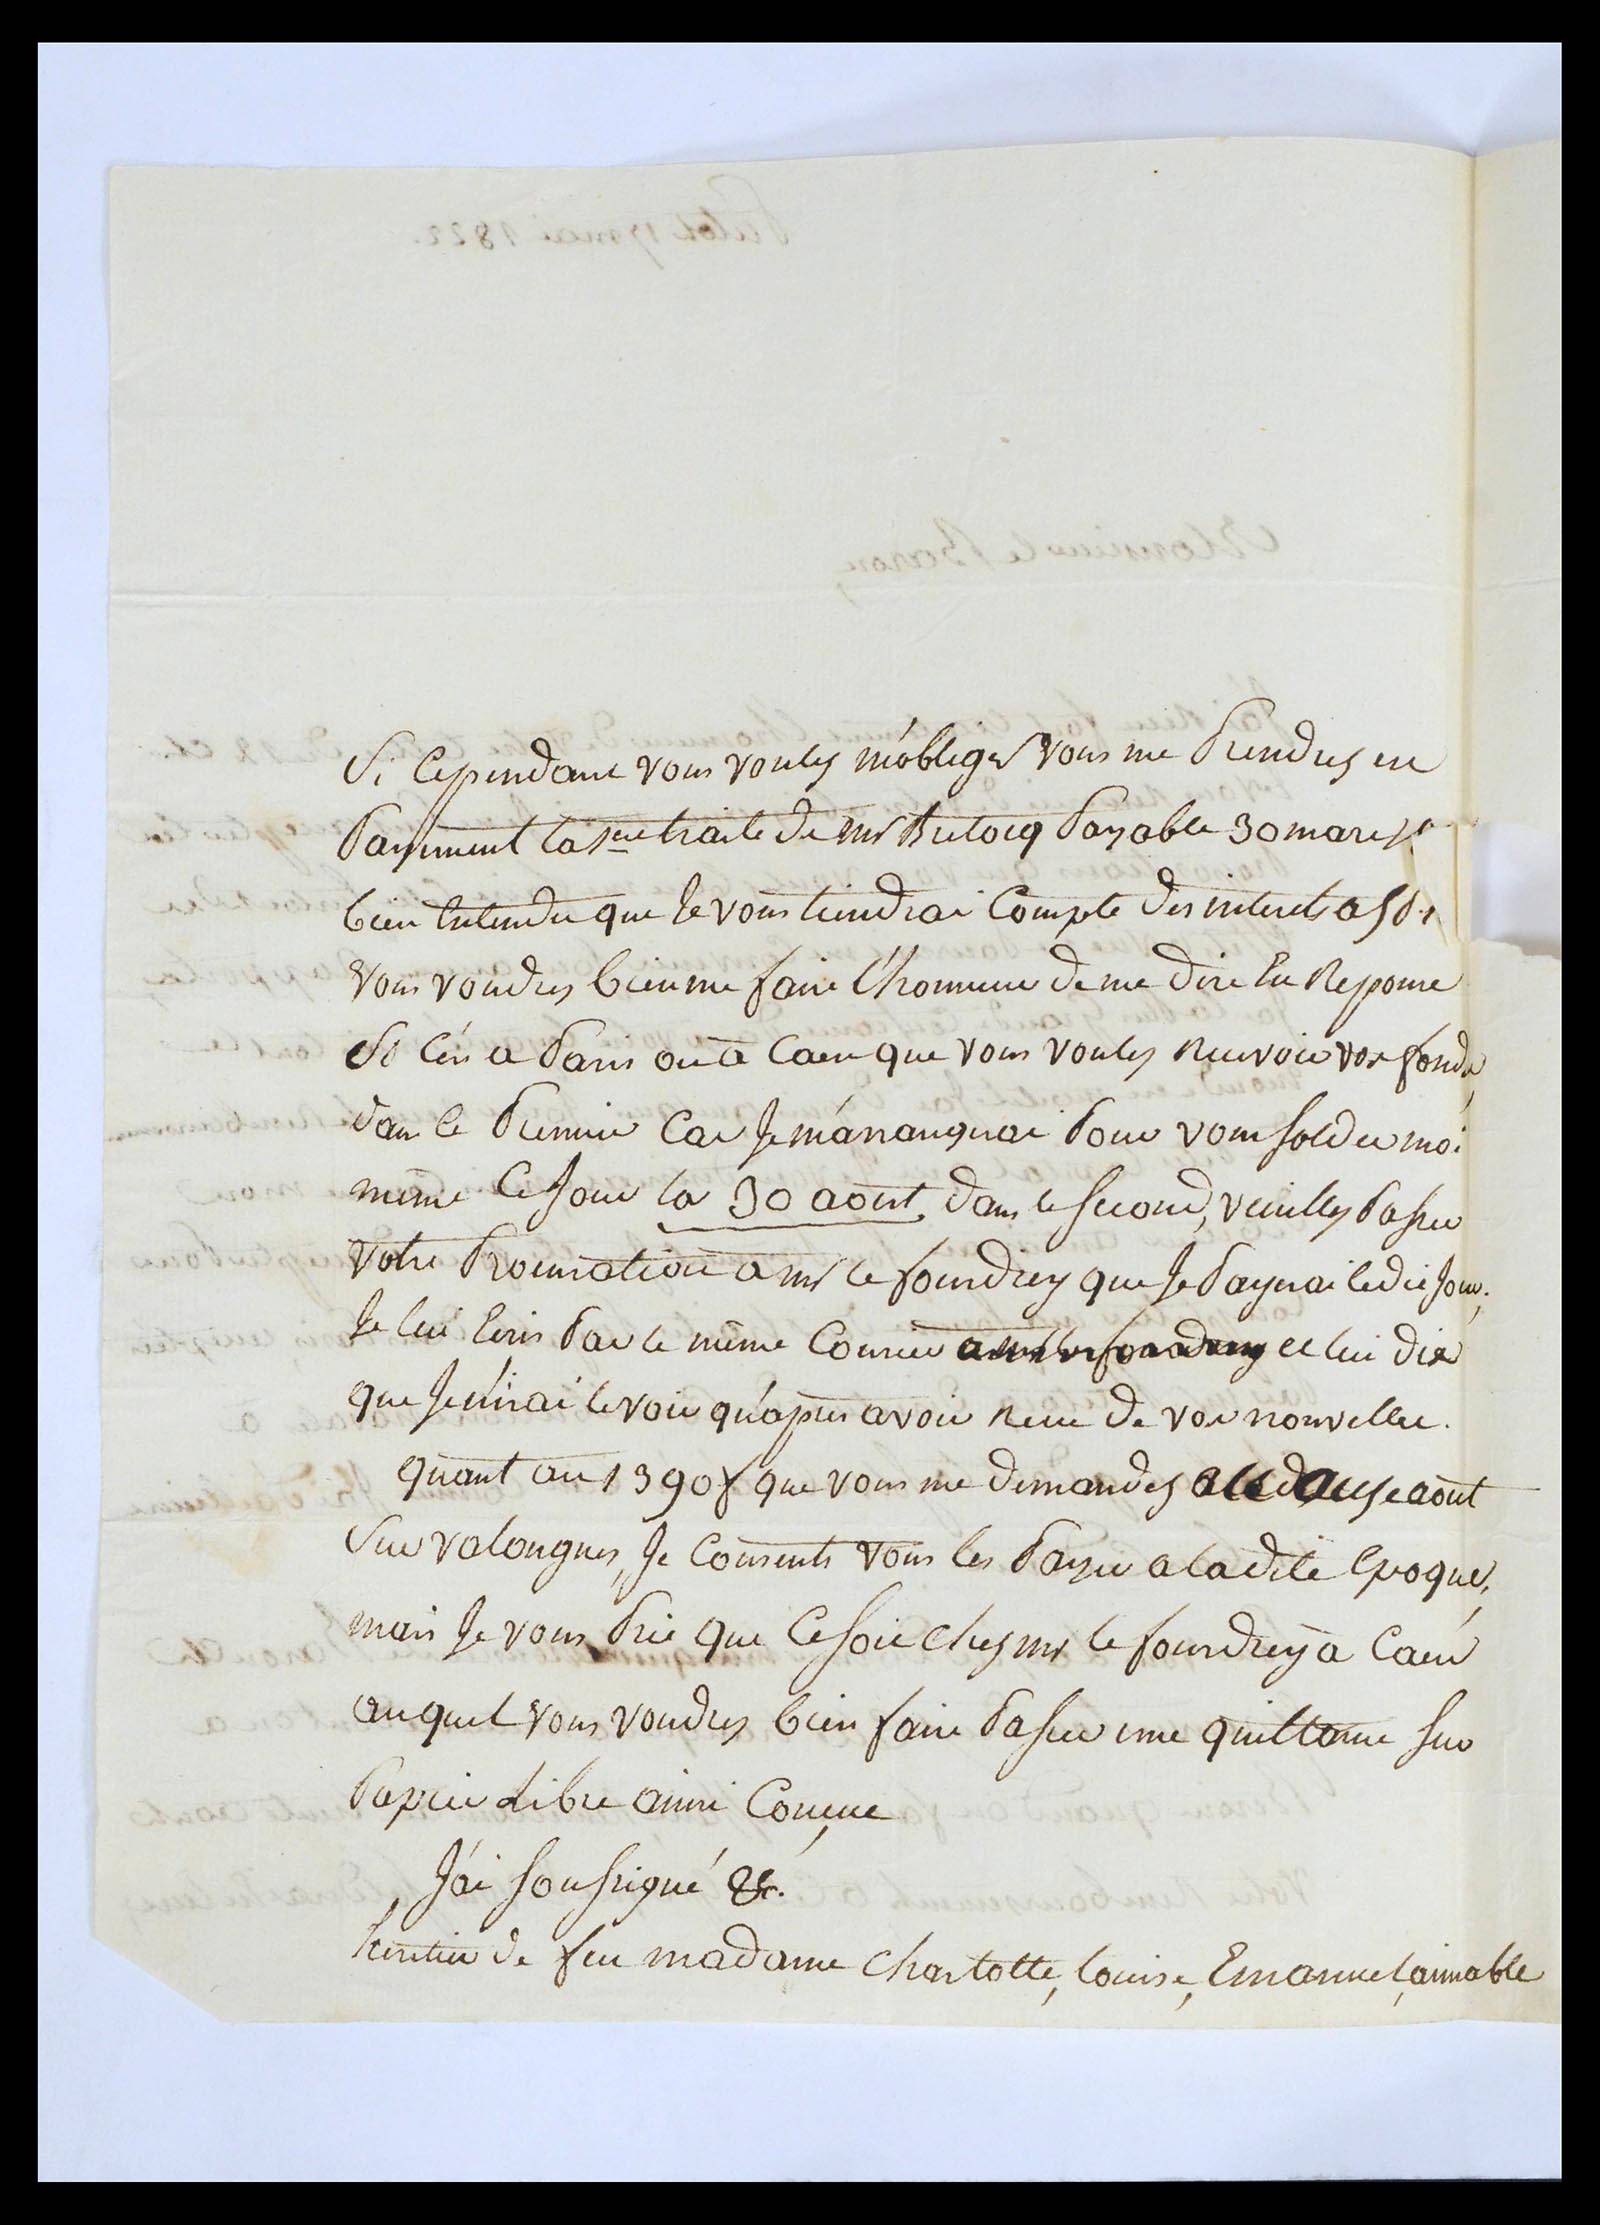 Si Cependant vous voulez m'obliger vous me Prendrez en
Payement la 1ere traite de Mr Payable 30 mars
bien Entendu que Je vous tiendrai Compte des interets a
vous voudrez bien me faire l'honneur de me dire En Reponse
Si C'es a Paris ou a Caen que vous voulez Recevoir vos fonds,
dans le Premier Cas Je m'arrangerai Pour vous solder moi
même Ce Jour la 30 aout, dans le second, veuillez Passer
votre Procuration a Mr le fourdrey que Je Payerai ledit Jour,
Je lui Ecris Par le même Courrier et lui dis
que Je n'irai le voir qu'apres avoir Recu de vos nouvelles.
quant au 1390 f que vous me demandez aout
Sur valongnes, Je Consents vous les Payer a la dite Epoque,
mais Je vous Prie que Ce soit chez Mr le fourdrey a Caen
auquel vous voudrez bien faire Passer une quittance sur
Papier Libre ainsi Conçue
J'ai soussigné &c.
heritier de feu madame Charlotte, louise, Emanuel, aimable